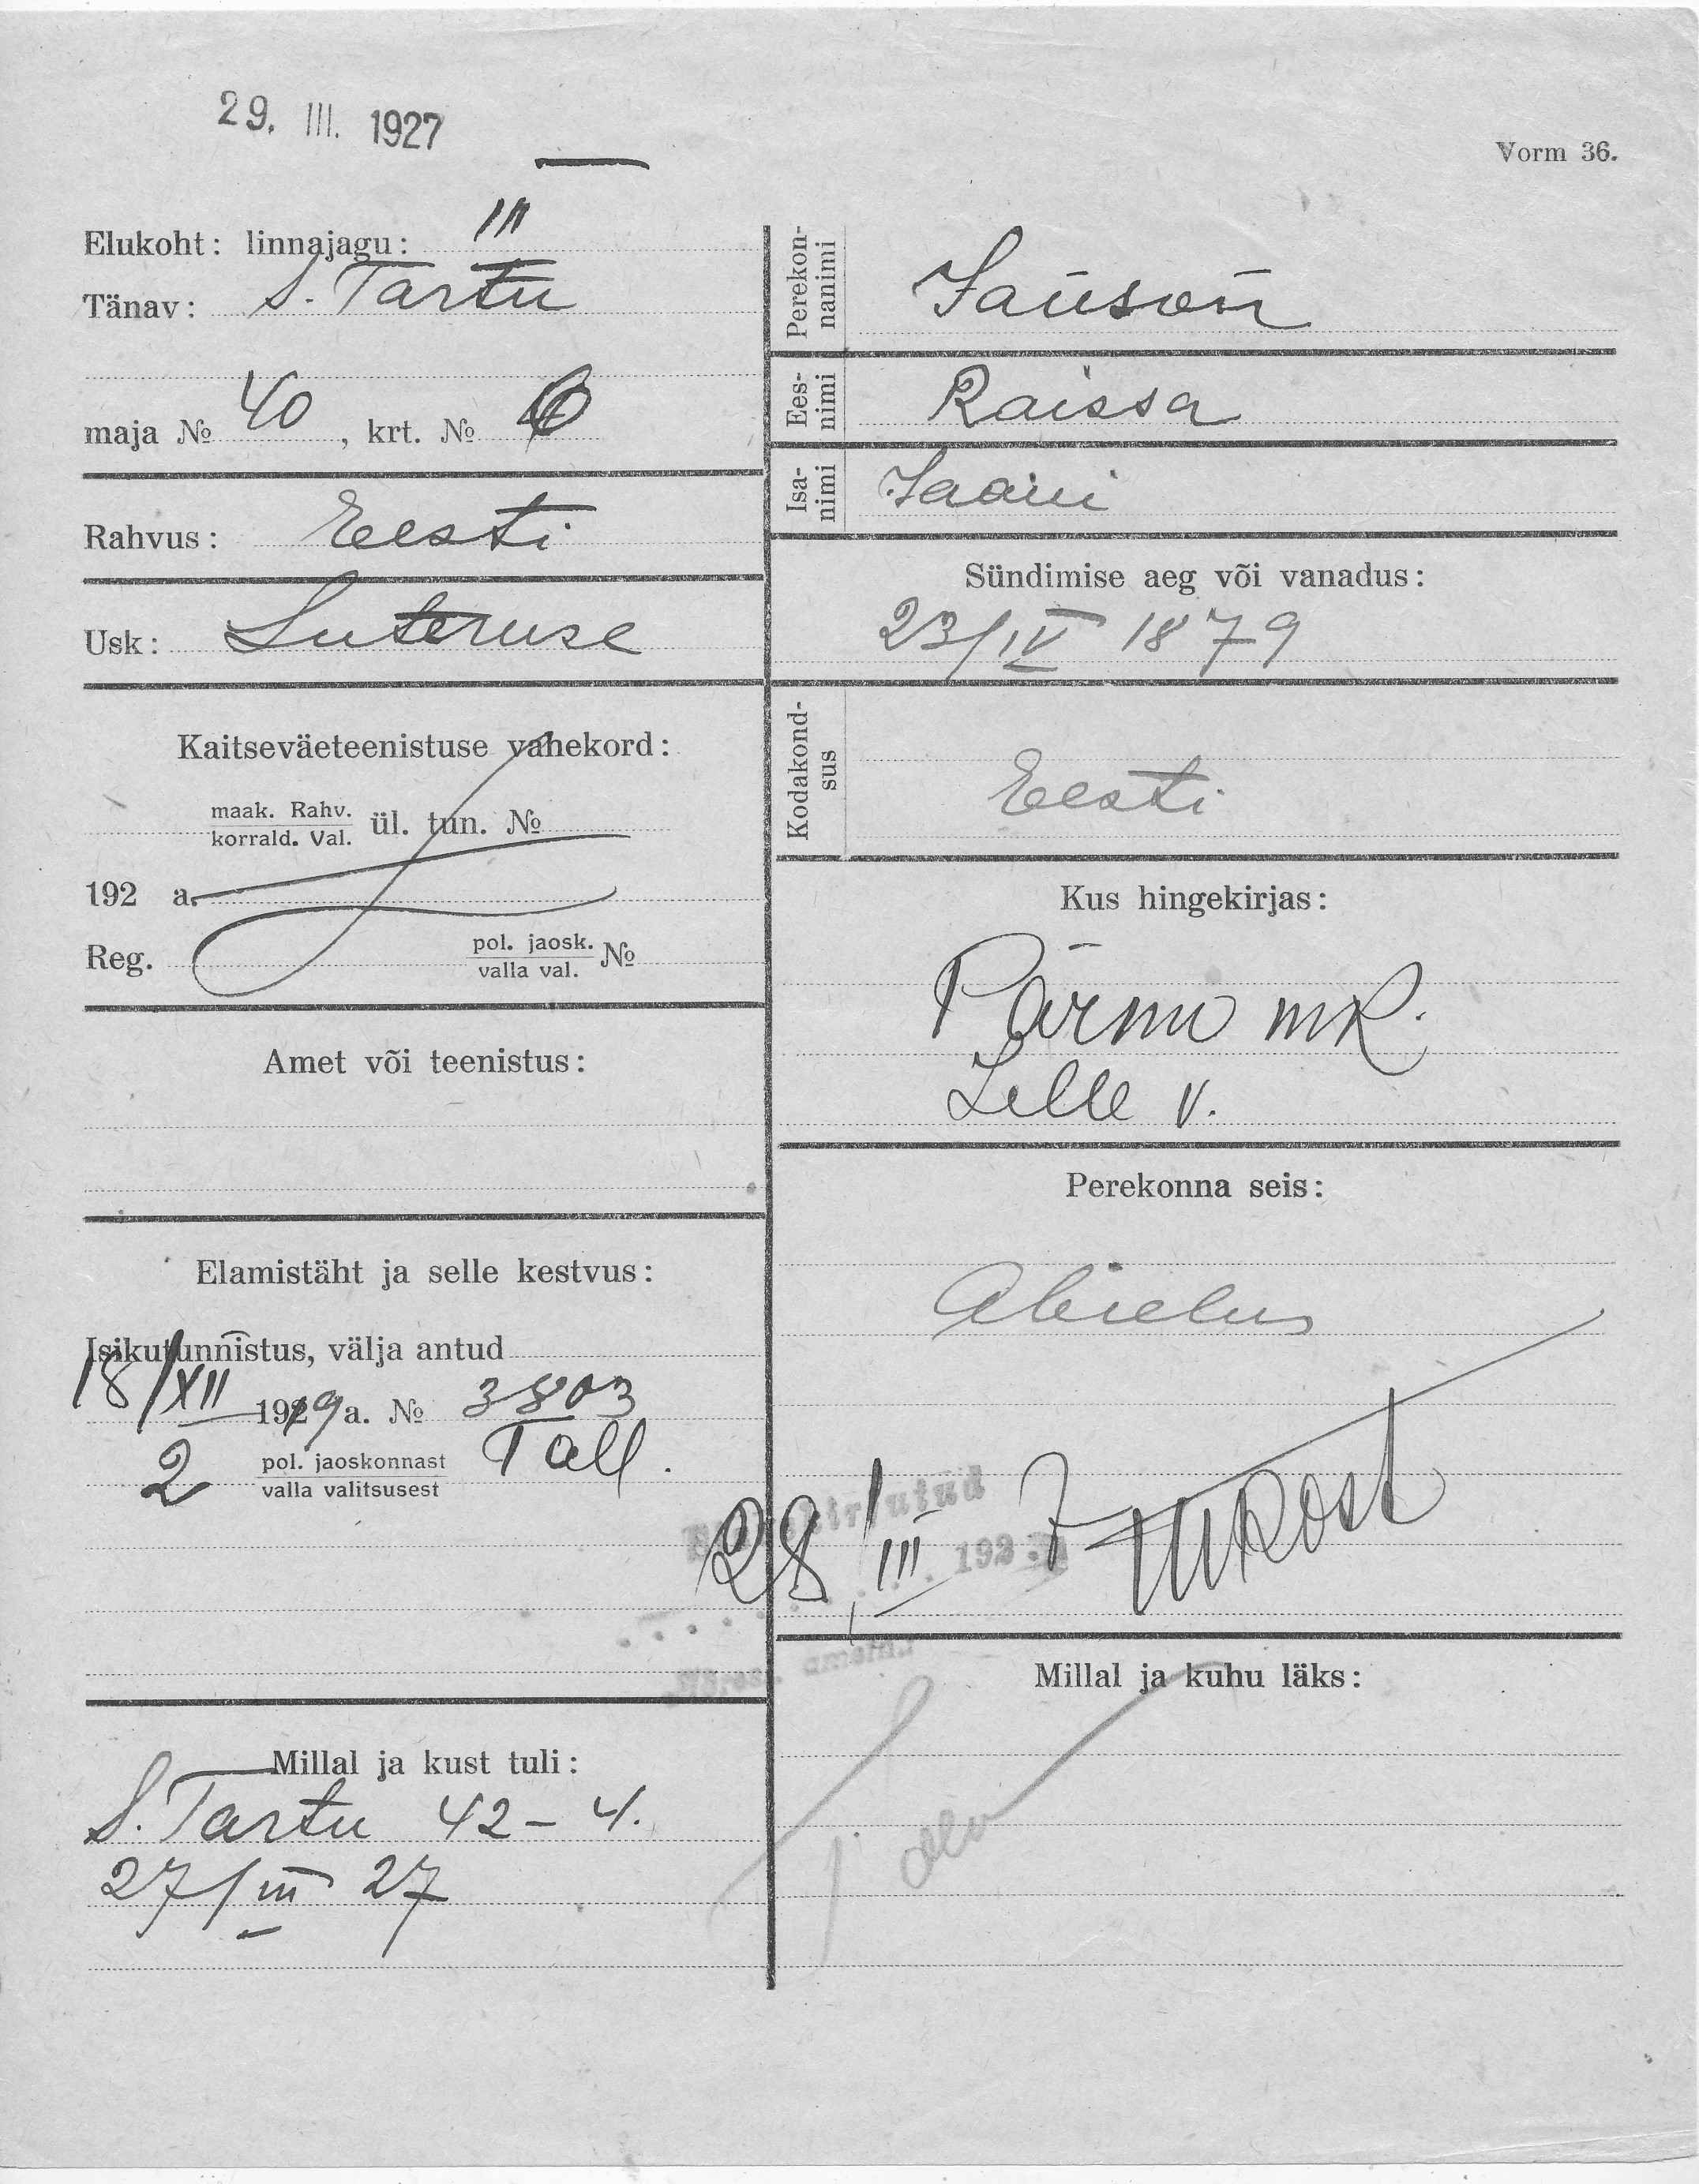 29. III. 1927
Vorm 36.
Elukoht: linnajagu: III
Tänav: S. Tartu
maja № 40, krt. № 6
Rahvus: Eesti
Usk: Luteruse
Kaitseväeteenistuse vahekord:
maak. Rahv.
korrald. Val. ül. tun. №
192 a.
Reg. pol. jaosk.
valla val. №
Amet või teenistus:
Elamistäht ja selle kestvus:
Isikutunnistus, välja antud
18/XII 1919 a. № 3803
2 pol. jaoskonnast Tall.
valla valitsusest
Millal ja kust tuli:
S. Tartu 42-4.
27/III 27
Perekon-
nanimi Janson
Ees-
nimi Raissa
Isa-
nimi Jaani
Sündimise aeg või vanadus:
23/IV 1879
Kodakond-
sus Eesti
Kus hingekirjas:
Pärnu mk.
Lelle v.
Perekonna seis:
Abielus
28/III 192 7
Millal ja kuhu läks: